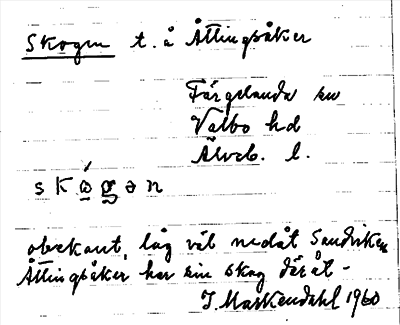 Skogen t. å Åttingsåker
Färgelanda sn
Valbo hd
Älvsb. l.
skώgən
obekant, låg väl nedåt Sandviken
Åttingsåker har sin skog däråt -
J. Maskendahl 1960